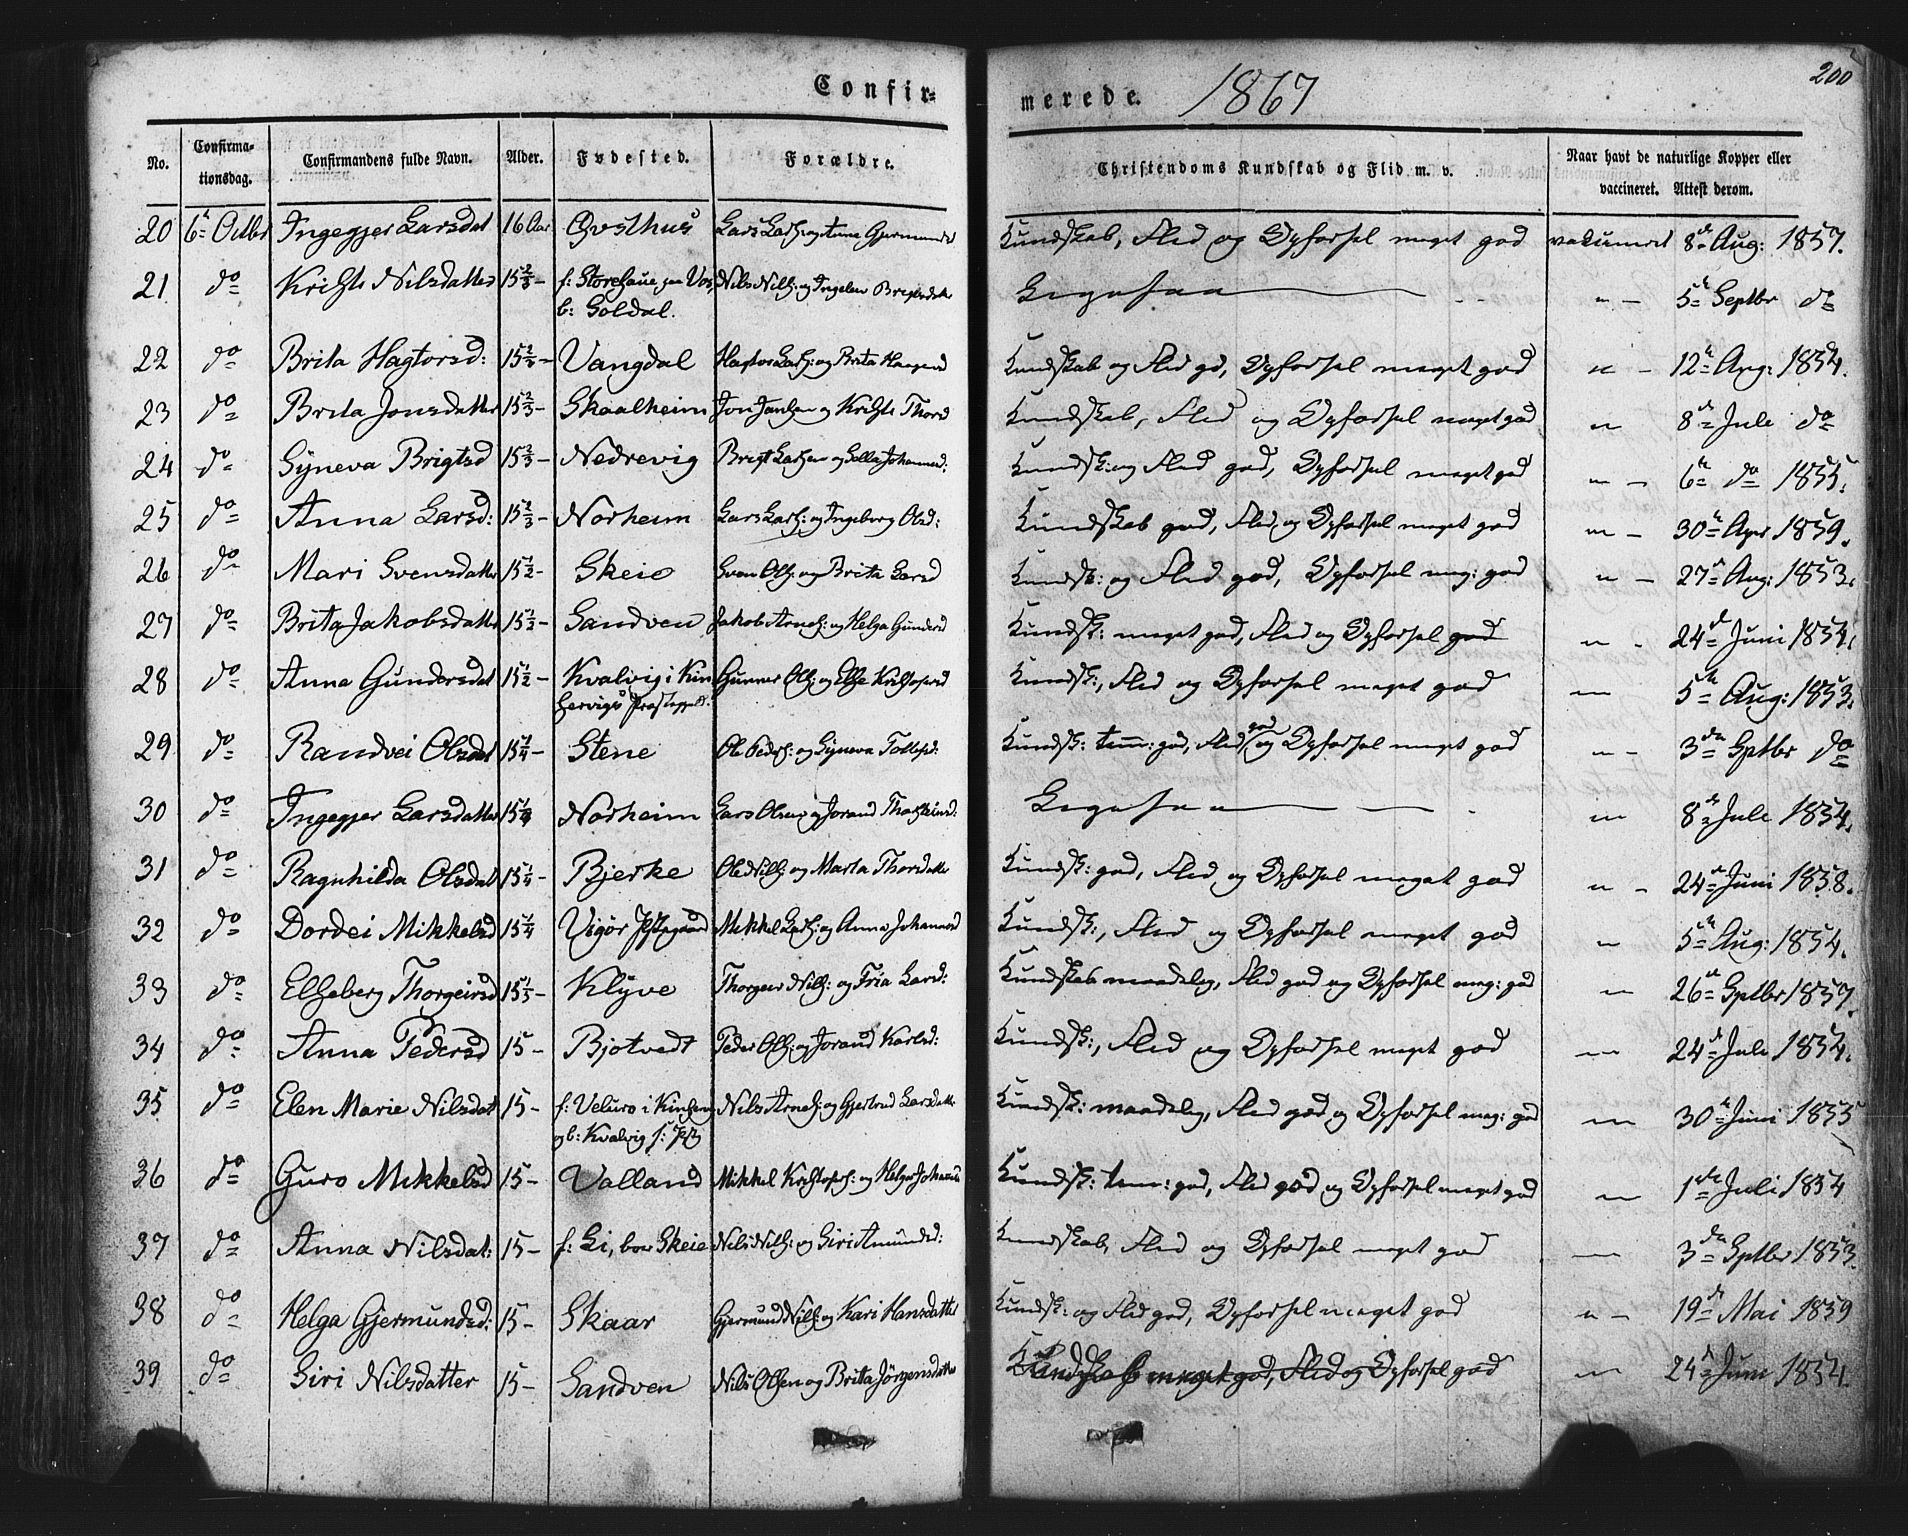 Confir- merede. 1867 200
No. Confirma-tionsdag. Confirmandens fulde Navn. Alder. Fødested. Forældre. Christendoms Kundskab og Flid m. v. Naar havt de naturlige Kopper eller vaccineret. Attest derom.
20 6te Octbr Ingegjer Larsdat 16 Aar Øvsthus Lars Larss: og Anna Gjermundsd Kundskab, Flid og Opførsel meget god vakcineret 8de Aug: 1857.
21 do Nilsdatter 15 2/3 – f: paa Vos, Nils Nilss: og Ligesaa " – 5te Septbr do
b: Soldal.
22 do Brita Hagtorsd: 15 2/3 – Vangdal Hagtor Larss: og Brita Kundskab og Flid gd, Opførsel meget god " – 12te Aug: 1854.
23 do Brita Jonsdatter 15 2/3 – Skaalheim Jon og Thorsd Kundskab, Flid og Opførsel meget god " 8de Juli do
24 do Syneva Brigtsd 15 2/3 – Nedrevig Brigt Larssen og Johannesd: Kundsk: og Flid god, Opførsel meget god " – 6te do 1855.
25 do Anna Larsd: 15 2/3 – Norheim Lars Larss: og Ingeborg Olsd: Kundskab god, Flid og Opførsel meget god " – 30te Apr 1859.
26 do Mari Svensdatter 15 1/2 – Skeie Sven Olss: og Brita Larsd Kundsk: og Flid god, Opførsel meg: god " – 27de Aug: 1853.
27 do Brita Jakobsdatter 15 1/2 – Sandven Jakob Arness: og Helga Gundersd Kundsk: meget god, Flid og Opførsel god " – 24de Juni 1854.
28 do Anna Gundersdat 15 1/2 – Kvalvig i Kin- Gunner Olss: og Else Kristofersd Kundsk:, Flid og Opførsel meget god " 5te Aug: 1853.
servigs Præstegjeld:
29 do Randvei Olsdat 15 1/4 – Stene Ole Peders: og Syneva Tollefsd: Kundsk: tem: god, Flid god og Opførsel meget god " – 3die Sptbr do
30 do Ingegjer Larsdatter 15 1/4 Norheim Lars Olsen og Jorand Ligesaa " 8de Juli 1854.
31 do Ragnhilda Olsdat 15 1/4 – Bjerke Ole Nilss: og Marta Thorsdatter Kundsk: god, Flid og Opførsel meget god " – 24de Juni 1858.
32 do Dordei Mikkelsd 15 1/4 Vigør Mikkel Larss: og Anna Johannesd Kundsk:, Flid og Opførsel meget god " 5te Aug: 1854.
33 do Elseberg Thorgeirsd 15 1/3 – Klyve Thorgeir Nilss: og Larsd: Kundskab maadelig, Flid god og Opførsel meg: god " 26de Sptbr 1857.
34 do Anna Pedersd 15 – Bjotvedt Peder Olss: og Jorand Karlsd: Kundsk:, Flid og Opførsel meget god " 24de Juli 1854.
35 do Elen Marie Nilsdat 15 – f: Veluro i Nils Arness: og Gjertrud Larsdatter Kundsk: maadelig, Flid god og Opførsel meg: god " 30te Juni 1855
og b: Kvalvig
36 do Guro Mikkelsd 15 – Valland Mikkel Kristofers: og Helga Johannesd Kundsk: tem: god, Flid god og Opførsel meget god " 1ste Juli 1854
37 do Anna Nilsdat: 15 – f: Li, boer Skeie Nils Nilss: og Siri Amundsd: Kundskab, Flid og Opførsel meget god " 3die Sptbr 1853.
38 do Helga Gjermundsd: 15 – Skaar Gjermund Nilss: og Kari Hansdatter Kundsk: og Flid god, Opførsel meget god " – 19de Mai 1859
39 do Siri Nilsdatter 15 – Sandven Nils Olsen og Brita Jörgensdatter Kundskab meget god, Flid og Opførsel god " 24de Juni 1854.